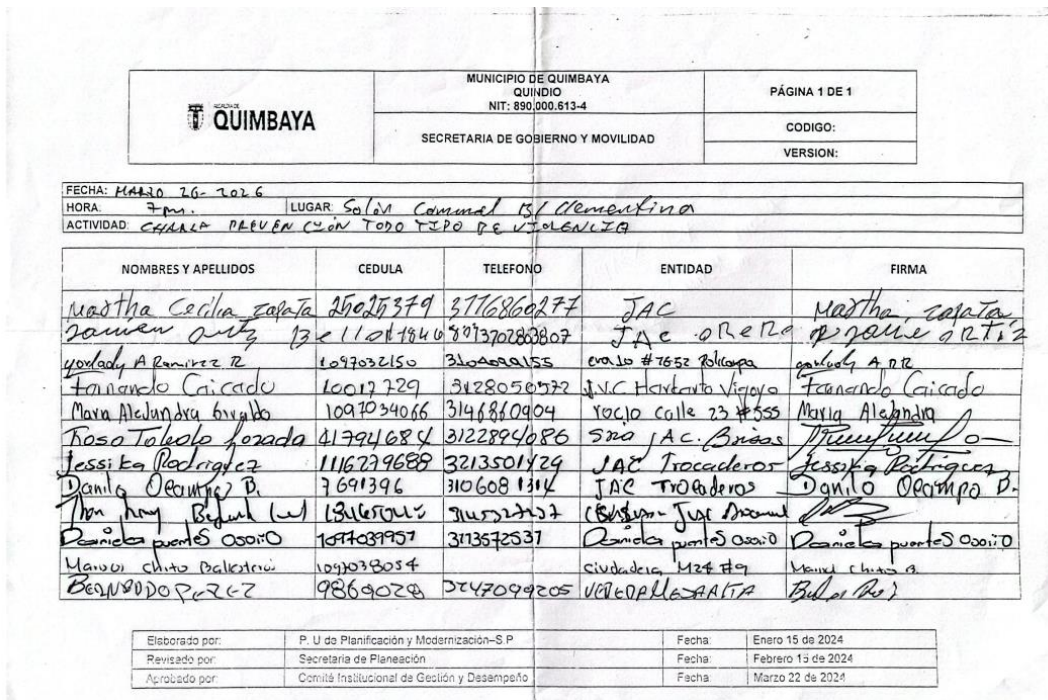 MUNICIPIO DE QUIMBAYA
QUINDIO
NIT: 890.000.613-4
PÁGINA 1 DE 1
QUIMBAYA
SECRETARIA DE GOBIERNO Y MOVILIDAD
CODIGO:
VERSION:
FECHA: MARZO 26-2026
HORA: 7pm. LUGAR: Salón Comunal B/ Clementina
ACTIVIDAD: CHARLA PREVENCIÓN TODO TIPO DE VIOLENCIA
NOMBRES Y APELLIDOS CEDULA TELEFONO ENTIDAD FIRMA
Martha Cecilia Zapata 25025379 3116860277 JAC Martha Zapata
JAC
yorlady A Ramirez R 1097032150 #7652
Fernando Caicedo 10017729 3128050572 Fernando Caicedo
Maria Alejandra 1097034066 3146860904 rocio calle 23 #555 Maria Alejandra
Rosa Toledo Lozada 41794684 3122894086 Sria JAC. Brisas
Jessika Rodriguez 1116279688 3213501429 JAC Trocaderos Jessika Rodriguez
Danilo Ocampo B. 7691396 3106081314 JAC Trocaderos Danilo Ocampo B.
Daniela puentes Osorio 1097039957 3113572537 Daniela puentes Osorio Daniela puentes Osorio
Manuel chito 1097038054 ciudadela M24 #9 Manuel chito B.
BERNARDO PEREZ 9869028 3247099205 VEREDA
Elaborado por: P. U de Planificación y Modernización–S.P Fecha: Enero 15 de 2024
Revisado por: Secretaria de Planeación Fecha: Febrero 15 de 2024
Aprobado por: Comité Institucional de Gestión y Desempeño Fecha: Marzo 22 de 2024